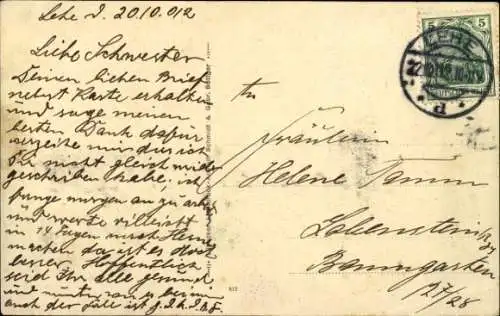 Lehe d. 20.10.012
Liebe Schwester
Deinen lieben Brief
nebst Karte erhalten
und sage meinen
besten Dank dafür
verzeihe mir das ich
Dir nicht gleich wieder
geschrieben habe, ich
fange morgen an zu arb
und werde villeicht
in 14 Tagen nach Heme
machen da ist es doch
besser Hoffentlich
seid Ihr alle gesund
und munter was bei mir
auch der Fall ist
An
Fräulein
Helene Tamm
Lobenstein
Baumgarten
127/28
5 5
LEHE